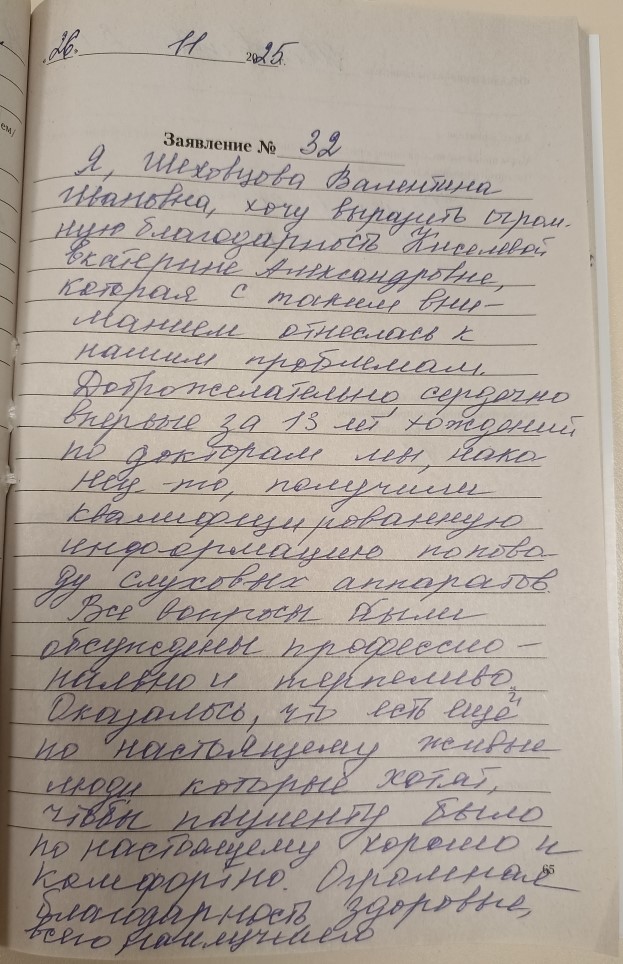 26. 11 2025г.
Заявление № 32
Я, Шеховцова Валентина
Ивановна, хочу выразить огром-
ную благодарность Киселевой
Екатерине Александровне,
которая с таким вни-
манием отнеслась к
нашим проблемам.
Доброжелательно, сердечно
впервые за 13 лет хождений
по докторам мы, нако
нец-то, получили
квалифицированную
информацию по пово-
ду слуховых аппаратов.
Все вопросы были
обсуждены профессио-
нально и терпеливо.
Оказалось, что есть ещё и
по настоящему живые
люди которые хотят,
чтобы пациенту было
по настоящему хорошо и
комфортно. Огромная
65
благодарность, здоровье,
всего наилучшего
ем/